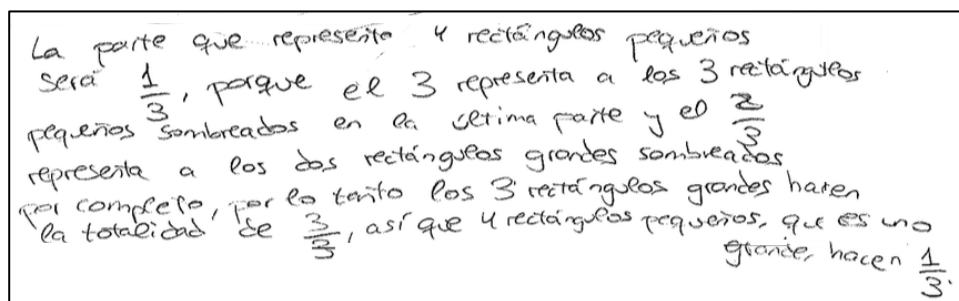 La parte que representa 4 rectángulos pequeños
será 1/3, porque el 3 representa a los 3 rectángulos
pequeños sombreados en la última parte y el 2/3
representa a los dos rectángulos grandes sombreados
por completo, por lo tanto los 3 rectángulos grandes hacen
la totalidad de 3/3, así que 4 rectángulos pequeños, que es uno
grande, hacen 1/3.